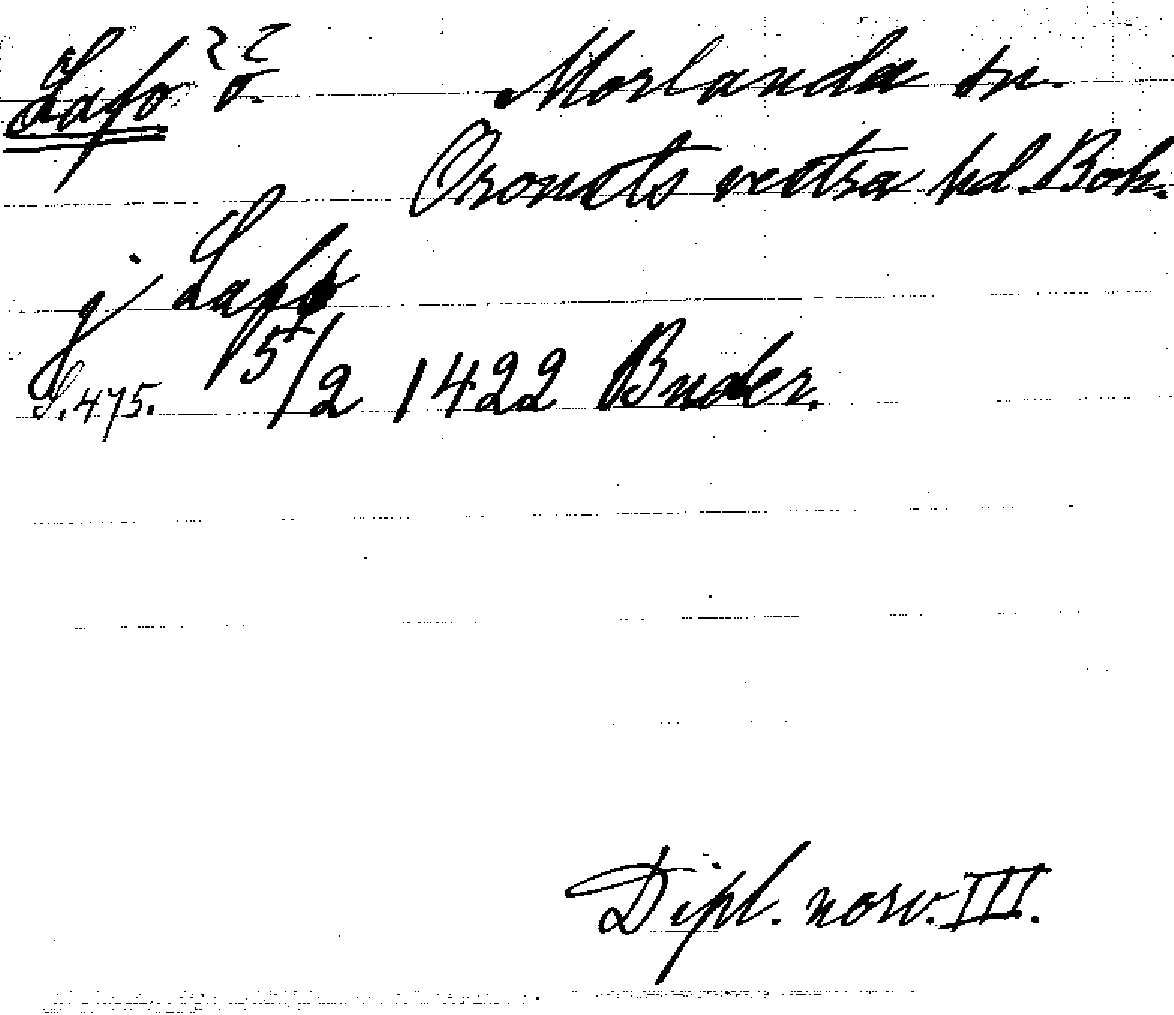 Lafö ö. Morlanda sn.
Orousts vestra hd. Boh.
j Lafø
S. 475. 15/2 1422 Buder.
Dipl. norv. III.